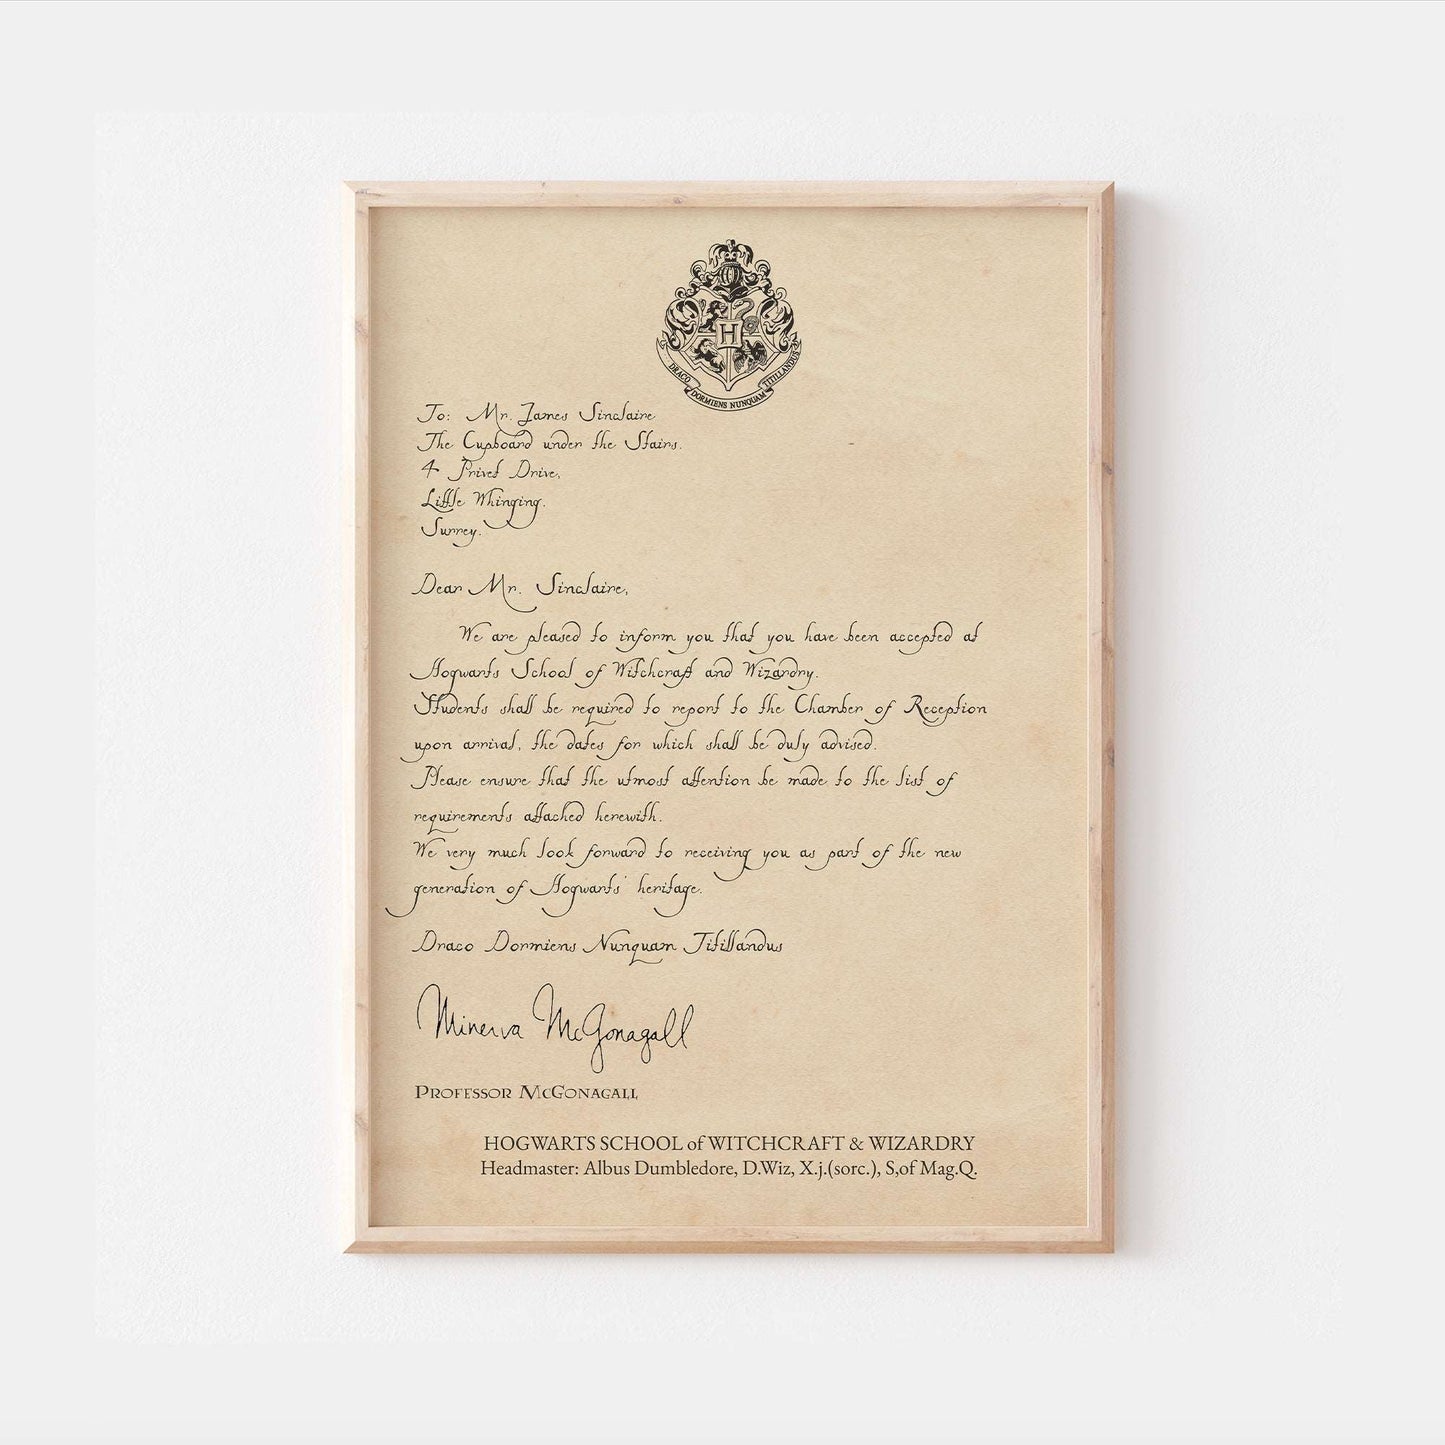 H
DRACO DORMIENS NUNQUAM TITILLANDUS
To: Mr. James Sinclaire
The Cupboard under the Stairs,
4 Privet Drive,
Little Whinging,
Surrey.
Dear Mr. Sinclaire,
We are pleased to inform you that you have been accepted at
Hogwarts School of Witchcraft and Wizardry.
Students shall be required to report to the Chamber of Reception
upon arrival, the dates for which shall be duly advised.
Please ensure that the utmost attention be made to the list of
requirements attached herewith.
We very much look forward to receiving you as part of the new
generation of Hogwarts' heritage.
Draco Dormiens Nunquam Titillandus
Minerva McGonagall
PROFESSOR MCGONAGALL
HOGWARTS SCHOOL of WITCHCRAFT & WIZARDRY
Headmaster: Albus Dumbledore, D.Wiz, X.j.(sorc.), S,of Mag.Q.